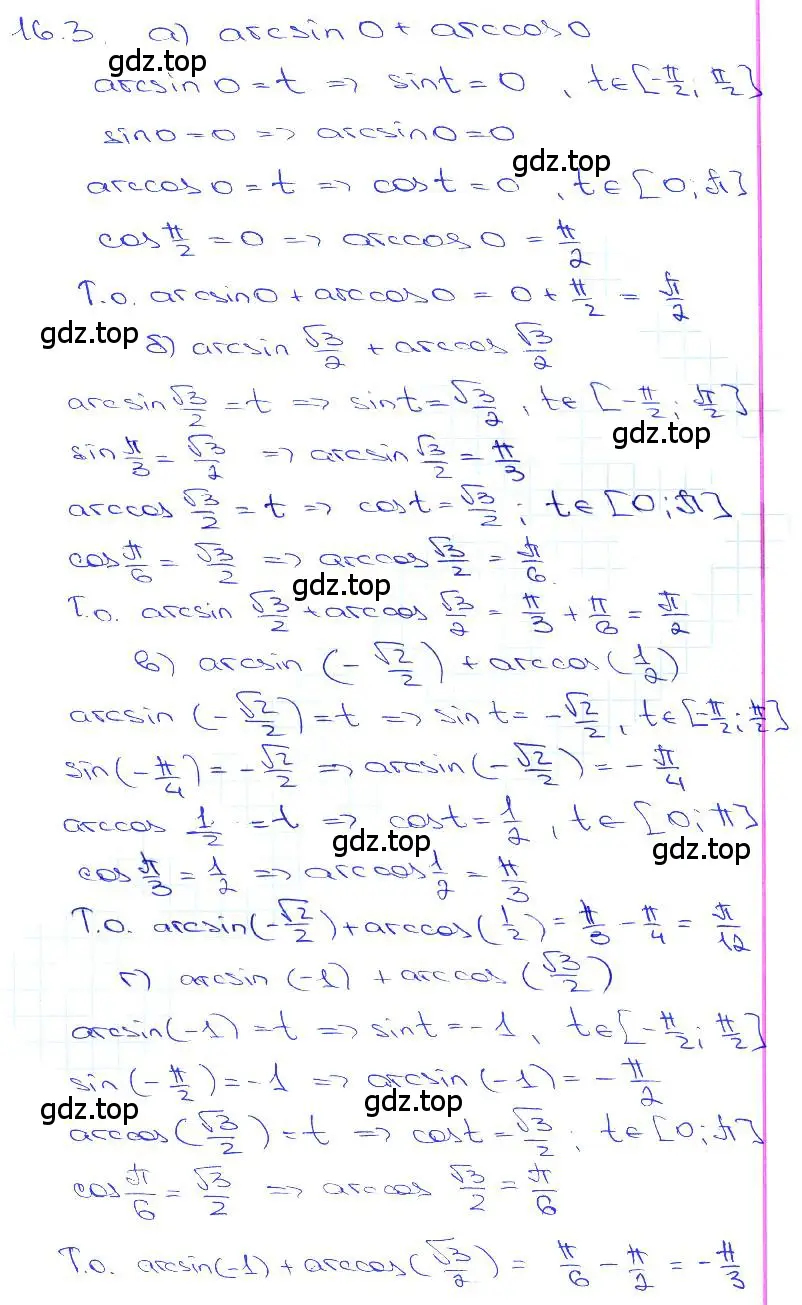 16.3. а) arcsin 0 + arccos 0
gdz.top
arcsin 0 = t => sin t = 0, t∈[-π/2; π/2]
sin 0 = 0 => arcsin 0 = 0
gdz.top
arccos 0 = t => cos t = 0, t∈[0; π]
cos π/2 = 0 => arccos 0 = π/2
Т.о. arcsin 0 + arccos 0 = 0 + π/2 = π/2
gdz.top
б) arcsin √3/2 + arccos √3/2
arcsin √3/2 = t => sin t = √3/2, t∈[-π/2; π/2]
gdz.top
sin π/3 = √3/2 => arcsin √3/2 = π/3
arccos √3/2 = t => cos t = √3/2; t∈[0; π]
cos π/6 = √3/2 => arccos √3/2 = π/6
gdz.top
Т.о. arcsin √3/2 + arccos √3/2 = π/3 + π/6 = π/2
в) arcsin (-√2/2) + arccos (1/2)
arcsin (-√2/2) = t => sin t = -√2/2, t∈[-π/2; π/2]
sin (-π/4) = -√2/2 => arcsin (-√2/2) = -π/4
arccos 1/2 = t => cos t = 1/2, t∈[0; π]
gdz.top
gdz.top
cos π/3 = 1/2 => arccos 1/2 = π/3
Т.о. arcsin (-√2/2) + arccos (1/2) = π/3 - π/4 = π/12
г) arcsin (-1) + arccos (√3/2)
arcsin (-1) = t => sin t = -1, t∈[-π/2; π/2]
sin (-π/2) = -1 => arcsin (-1) = -π/2
gdz.top
gdz.top
arccos (√3/2) = t => cos t = √3/2; t∈[0; π]
cos π/6 = √3/2 => arccos √3/2 = π/6
Т.о. arcsin (-1) + arccos (√3/2) = π/6 - π/2 = -π/3